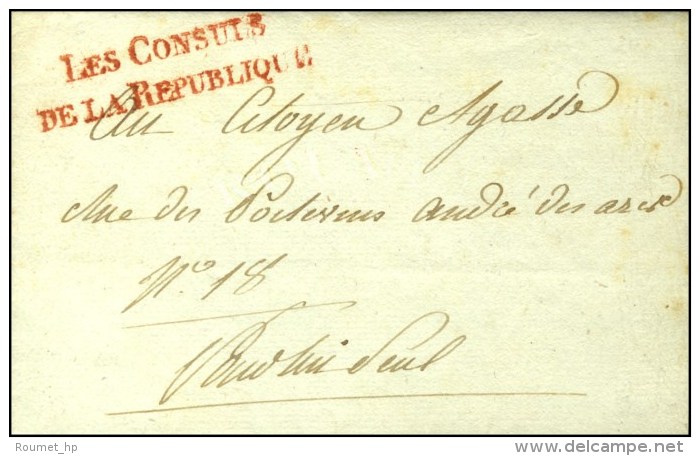 LES CONSULS
DE LA REPUBLIQUE
Au Citoyen Agasse
Rue des Poitevins andré des arcs
N.o 18
Pour lui Seul
Roumet_hp
www.delcampe.net